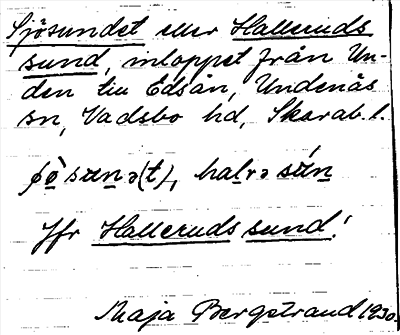 Sjösundet eller Halleruds
sund, inloppet från Un-
den till Edsån, Undenäs
sn, Vadsbo hd, Skarab. l.
ʃö̀sɯnə(t), halrə sɯ́n
Jfr Halleruds sund!
Maja Bergstrand 1930.